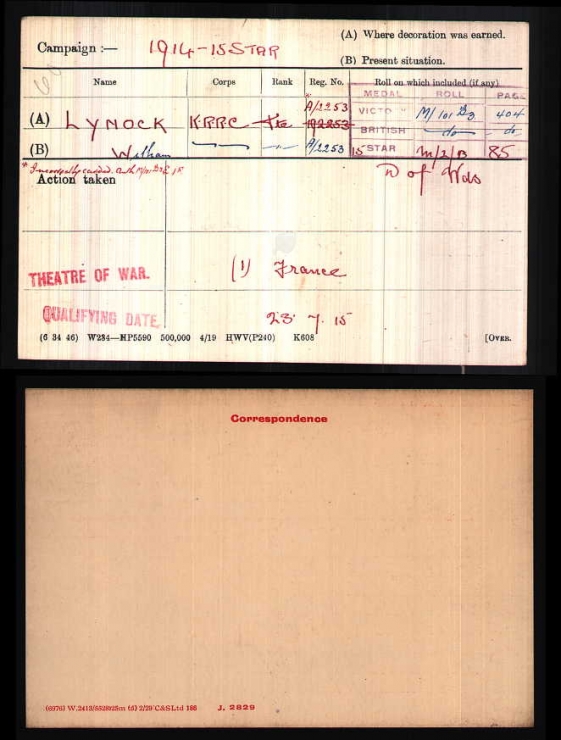 (A) Where decoration was earned.
Campaign :— 1914-15 STAR
(B) Present situation.
Name Corps Rank Reg. No. Roll on which included (if any)
MEDAL ROLL PAGE
* A/2253
VICTO M/101 B3 404
(A) LYNOCK KRRC Pte 192253
BRITISH -do- do
(B) William A/2253 15 STAR M/2/B 85
* Incorrectly carded.
Action taken D of Wds
THEATRE OF WAR. (1) France
QUALIFYING DATE 23 7 15
(6 34 46) W234—HP5590 500,000 4/19 HWV(P240) K608 [OVER.
Correspondence
(6976) W.2413/ 2/29 C&S Ltd 186 J. 2829